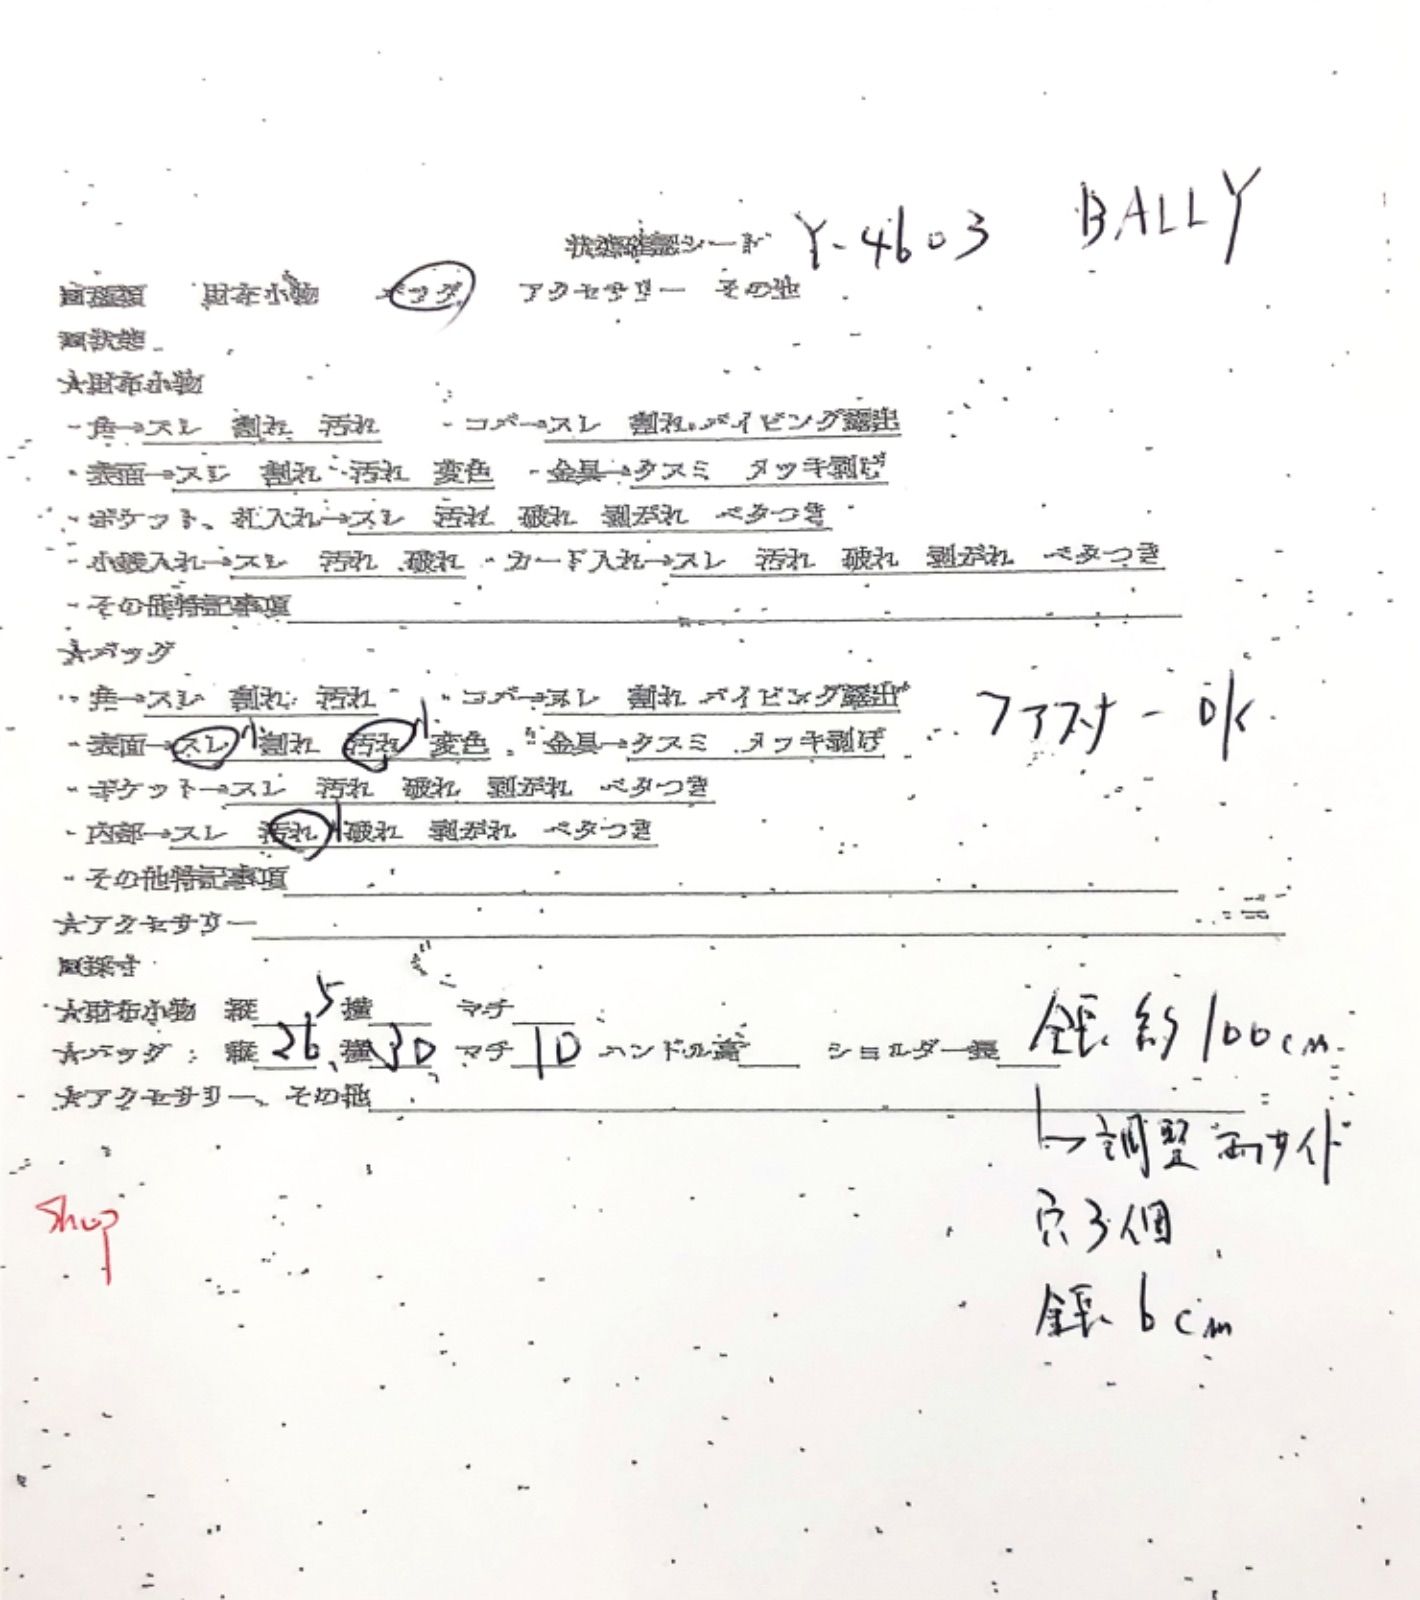 状態確認シート Y-4603 BALLY
■種類 財布小物 バッグ アクセサリー その他
■状態
★財布小物
・角→スレ 割れ 汚れ ・コバ→スレ 割れ パイピング露出
・表面→スレ 割れ 汚れ 変色 ・金具→クスミ メッキ剥げ
・ポケット、札入れ→スレ 汚れ 破れ 剥がれ ベタつき
・小銭入れ→スレ 汚れ 破れ ・カード入れ→スレ 汚れ 破れ 剥がれ ベタつき
・その他特記事項
★バッグ
・角→スレ 割れ 汚れ ・コバ→スレ 割れ パイピング露出 ファスナー OK
・表面→スレ 小 割れ 汚れ 小 変色 ・金具→クスミ メッキ剥げ
・ポケット→スレ 汚れ 破れ 剥がれ ベタつき
・内部→スレ 汚れ 小 破れ 剥がれ ベタつき
・その他特記事項
★アクセサリー
■採寸
★財布小物 縦 横 マチ
★バッグ:縦 26.5 横 30 マチ 10 ハンドル高 ショルダー長 全長 約100cm
★アクセサリー、その他
↳調整 両サイド
穴3個
全長 6cm
Shop